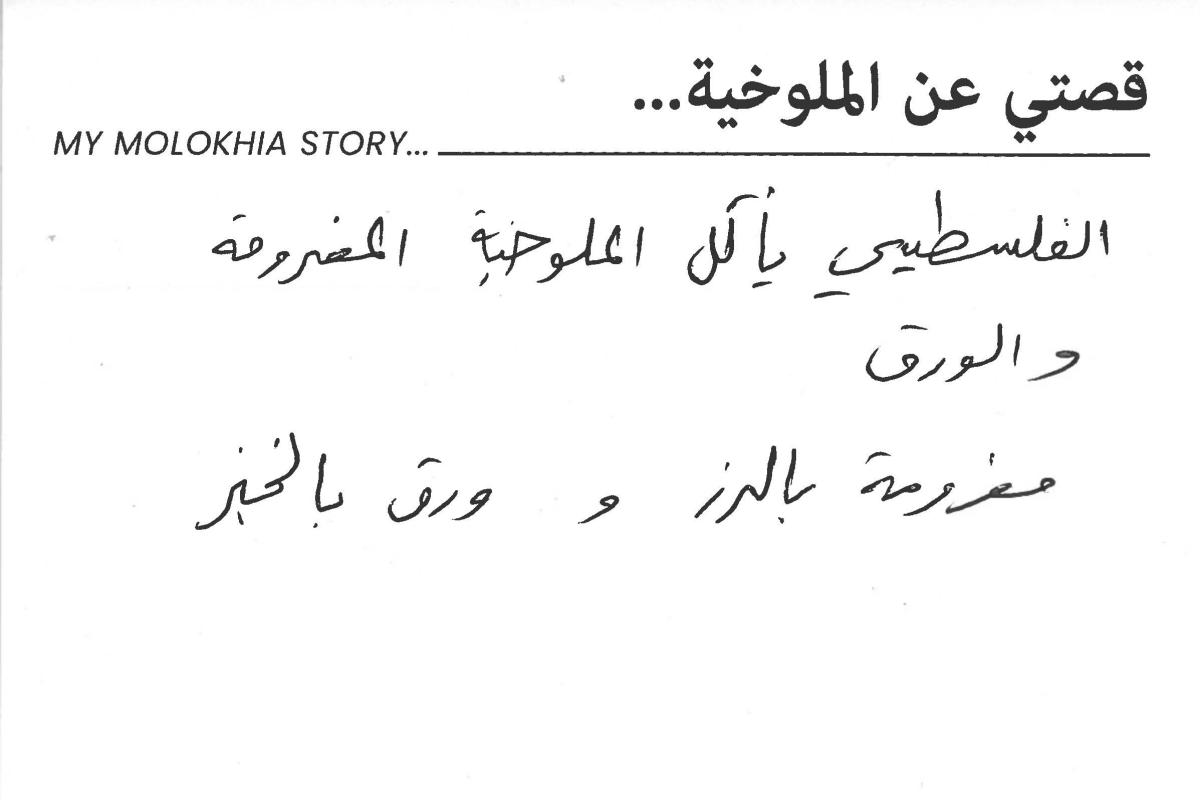 قصتي عن الملوخية...
MY MOLOKHIA STORY...
الفلسطيني يأكل الملوخية المفرومة
و الورق
مفرومة بالرز و ورق بالخبز